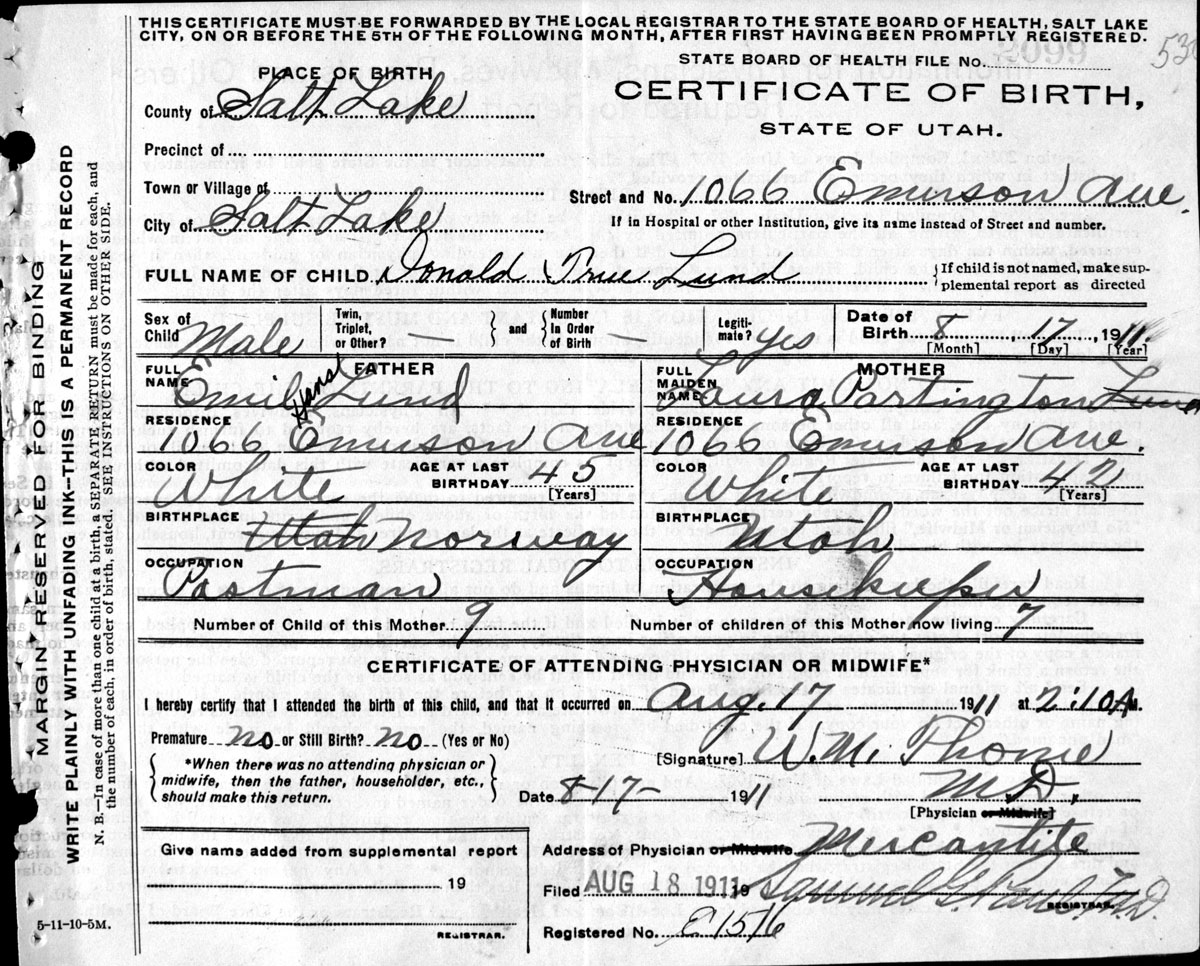 THIS CERTIFICATE MUST BE FORWARDED BY THE LOCAL REGISTRAR TO THE STATE BOARD OF HEALTH, SALT LAKE
CITY, ON OR BEFORE THE 5TH OF THE FOLLOWING MONTH, AFTER FIRST HAVING BEEN PROMPTLY REGISTERED.
STATE BOARD OF HEALTH FILE No.
PLACE OF BIRTH
CERTIFICATE OF BIRTH,
County of Salt Lake
STATE OF UTAH.
Precinct of
Town or Village of
Street and No. 1066 Emerson Ave.
City of Salt Lake
If in Hospital or other Institution, give its name instead of Street and number.
FULL NAME OF CHILD Donald True Lund
{If child is not named, make sup-
plemental report as directed
Sex of Child Male
Twin, Triplet, or Other?
{and} {Number In Order of Birth
Legiti- mate? yes
Date of Birth 8 17, 1911.
[Month] [Day] [Year]
FATHER
FULL NAME Emil Hans Lund
RESIDENCE
1066 Emerson Ave
COLOR White
AGE AT LAST BIRTHDAY 45
[Years]
BIRTHPLACE
Utah Norway
OCCUPATION
Postman
MOTHER
FULL MAIDEN NAME Laura Partington Lund
RESIDENCE
1066 Emerson Ave.
COLOR White
AGE AT LAST BIRTHDAY 42
[Years]
BIRTHPLACE
Utah
OCCUPATION
Housekeeper
Number of Child of this Mother 9
Number of children of this Mother now living 7
CERTIFICATE OF ATTENDING PHYSICIAN OR MIDWIFE*
I hereby certify that I attended the birth of this child, and that it occurred on Aug. 17 1911 at 2:10 A M.
Premature no or Still Birth? no (Yes or No)
*When there was no attending physician or
midwife, then the father, householder, etc.,
should make this return.
[Signature] W. M.
Date 8-17- 1911 M.D.
[Physician or Midwife]
Give name added from supplemental report
19
REGISTRAR.
Address of Physician or Midwife Mercantile
Filed AUG 18 1911 19 Samuel G. Paul M.D.
REGISTRAR.
Registered No. 1516
5-11-10-5M.
MARGIN RESERVED FOR BINDING
WRITE PLAINLY WITH UNFADING INK-THIS IS A PERMANENT RECORD
N. B.-In case of more than one child at a birth, a SEPARATE RETURN must be made for each, and
the number of each, in order of birth, stated. SEE INSTRUCTIONS ON OTHER SIDE.